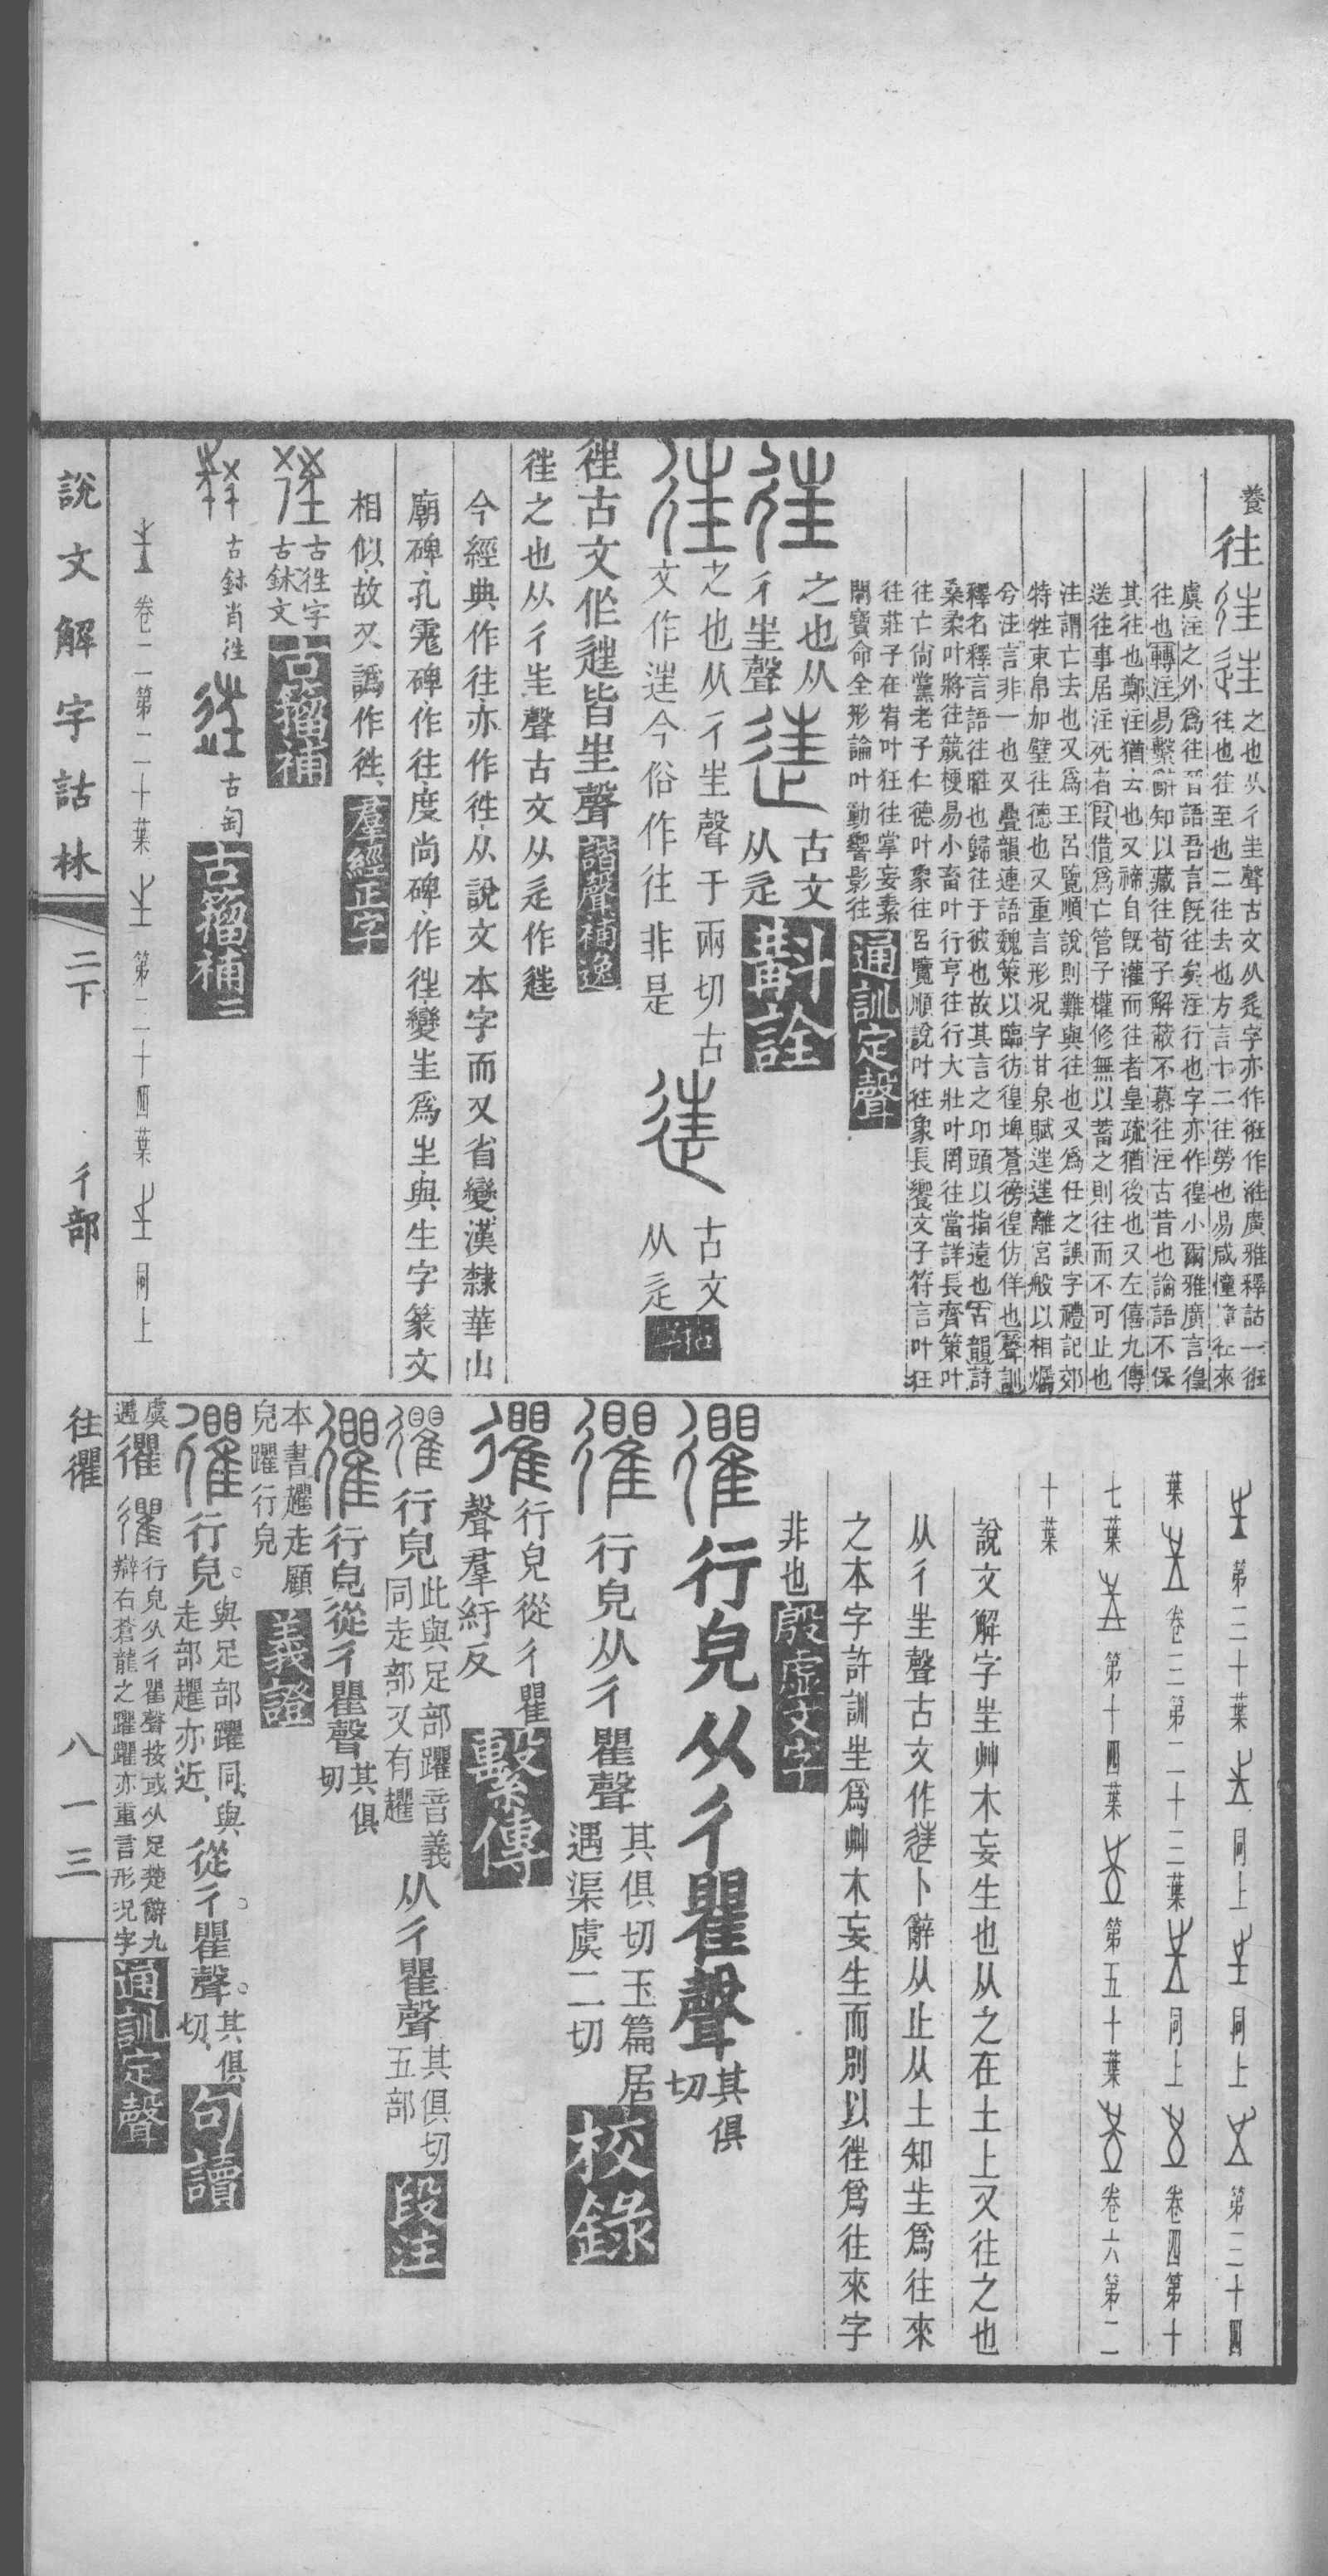 養
往
之也从彳㞷聲古文从辵字亦作徃作㴏廣雅釋詁一徃
往也徃至也二往去也方言十二往勞也易咸憧憧往來
虞注之外爲往晉語吾言旣往矣注行也字亦作徨小爾雅廣言徨
往也轉注易繫辭知以藏往荀子解蔽不慕往注古昔也論語不保
其往也鄭注猶去也又禘自旣灌而往者皇疏猶後也又左僖九傳
送往事居注死者叚借爲亡管子權修無以蓄之則往而不可止也
注謂亡去也又爲王呂覽順說則難與往也又爲任之誤字禮記郊
特牲束帛加璧往德也又重言形況字甘泉賦迋迋離宮般以相爥
兮注言非一也又疊韻連語魏策以臨彷徨埤蒼徬徨仿佯也聲訓
釋名釋言語往暀也歸往于彼也故其言之卬頭以指遠也古韻詩
桑柔叶將往競梗易小畜叶行亨往行大壯叶罔往當詳長齊策叶
往亡尙黨老子仁德叶象往呂覽順說叶往象長饗文子符言叶狂
往莊子在宥叶狂往掌妄素
問寶命全形論叶動響影往
通訓定聲
之也从
彳㞷聲
古文
从辵
斠詮
之也从彳㞷聲于兩切古
文作迋今俗作往非是
古文
从辵
徍古文作𨓹皆㞷聲
諧聲補逸
徃之也从彳㞷聲古文从辵作𨓹
今經典作往亦作徃从說文本字而又省變漢隸華山
廟碑孔霓碑作往度尚碑作徍變㞷爲㞷與生字篆文
相似故又譌作徃
羣經正字
古徃字
古鉥文
古籀補
古鉥肖徃
古匋
古籀補二
卷二第二十葉
第二十四葉
同上
說文解字詁林
二下
彳部
往忂
八一三
第二十葉
同上
同上
第三十四
葉
卷三第二十二葉
同上
卷四第十
七葉
第十四葉
第五十葉
卷六第二
十葉
說文解字㞷艸木妄生也从之在土上又往之也
从彳㞷聲古文作𨓹卜辭从止从土知㞷爲往來
之本字許訓㞷爲艸木妄生而別以徍爲往來字
非也
殷虛文字
行皃从彳瞿聲
其俱
切
行皃从彳瞿聲
其俱切玉篇居
遇渠虞二切
校錄
行皃從彳瞿
聲羣紆反
繫傳
行皃
此與足部躣音義
同走部又有趯
从彳瞿聲
其俱切
五部
段注
行皃從彳瞿聲
其俱
切
本書趯走顧
皃躣行皃
義證
行皃
與足部躣同與
走部趯亦近
從彳瞿聲
其俱
切
句讀
虞
遇
忂
行皃从彳瞿聲按或从足楚辭九
辯右蒼龍之躣躣亦重言形況字
通訓定聲